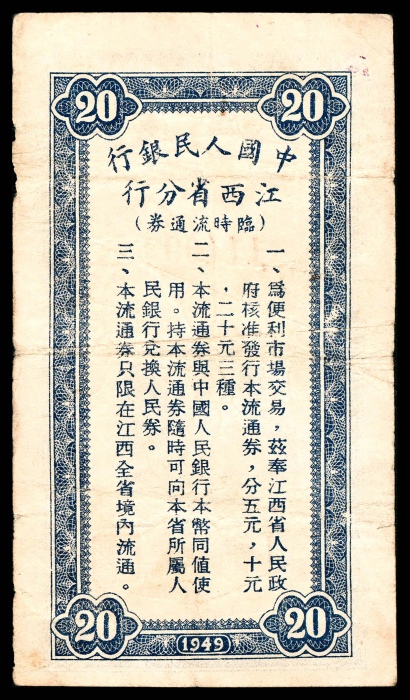 20
20
中國人民銀行
江西省分行
(臨時流通券)
一、爲便利市場交易，茲奉江西省人民政
府核准發行本流通券，分五元，十元
，二十元三種。
二、本流通券與中國人民銀行本幣同值使
用。持本流通券隨時可向本省所屬人
民銀行兌換人民券。
三、本流通券只限在江西全省境內流通。
20
1949
20